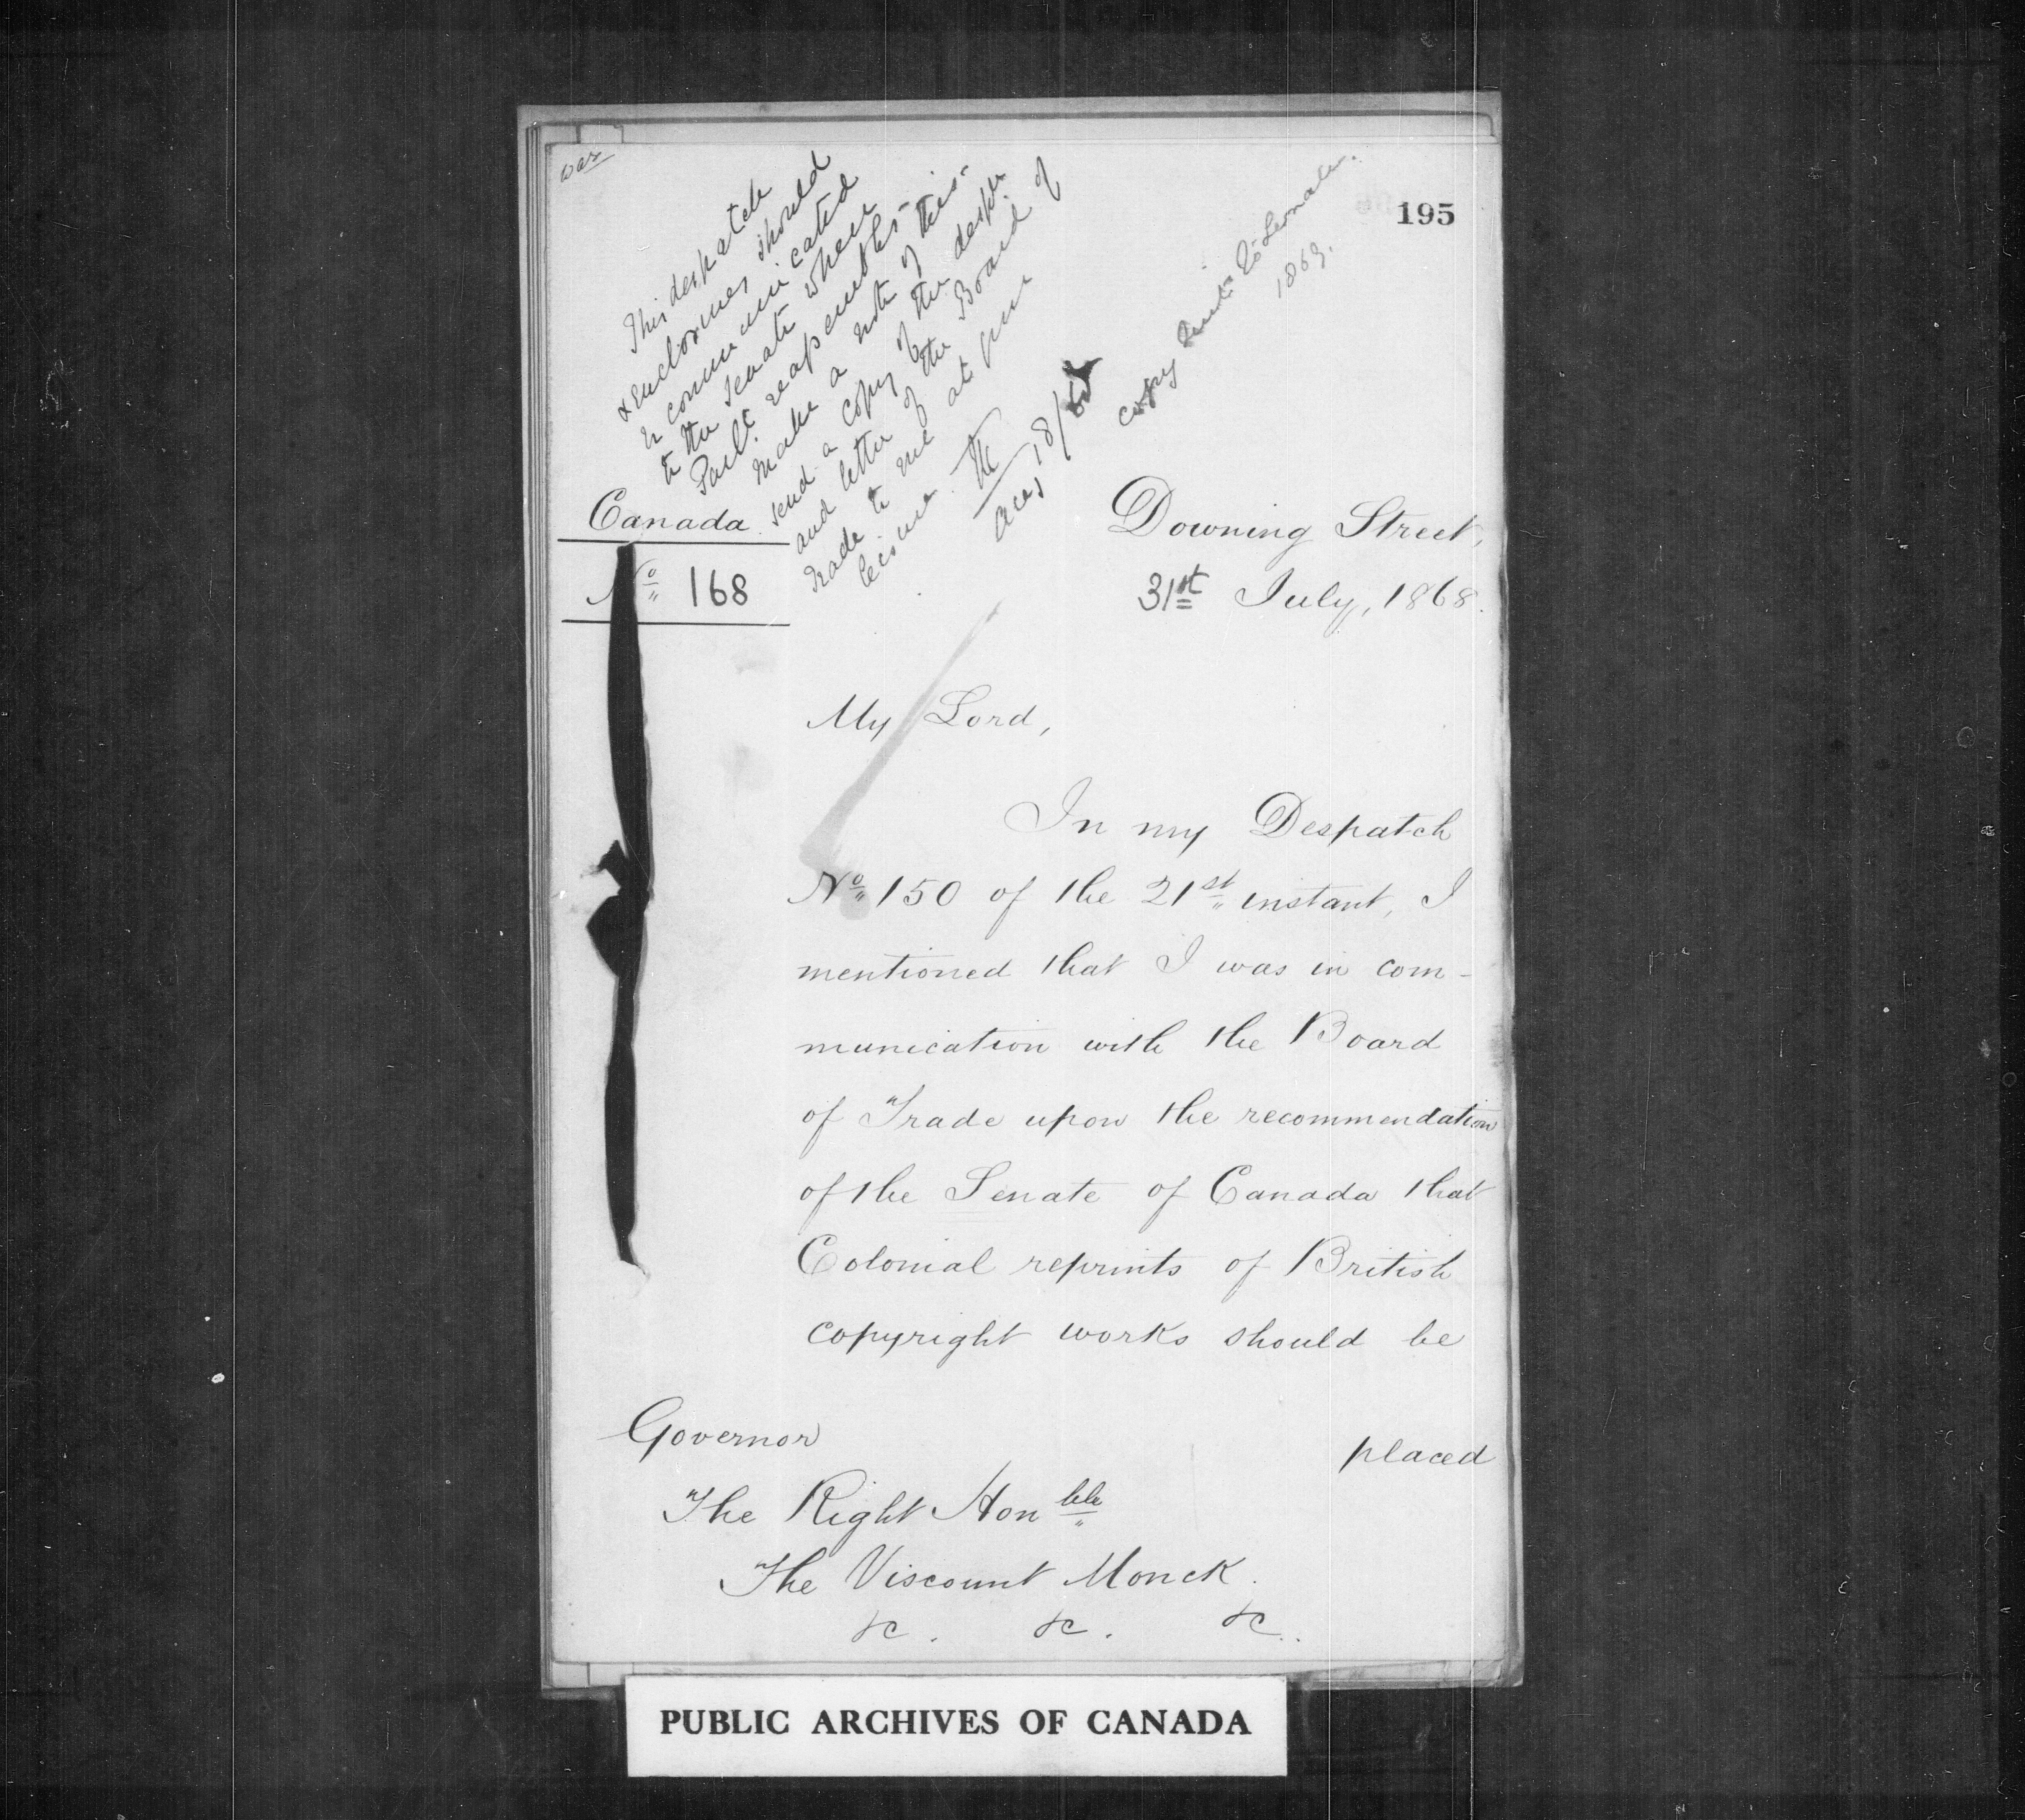 195
This despatch
& enclosures should
be communicated
to the Senate when
Parlt. reassembles -
Make a note of this -
send a copy of the despch
and letter of the Board of
Trade to me at your
leisure
Aug 18/68
copy sent to Senate.
1869.
Canada
No. 168
Downing Street,
31st July, 1868.
My Lord,
In my Despatch
No. 150 of the 21st instant, I
mentioned that I was in com-
munication with the Board
of Trade upon the recommendation
of the Senate of Canada that
Colonial reprints of British
copyright works should be
placed
Governor
The Right Honble
The Viscount Monck.
&c. &c. &c.
PUBLIC ARCHIVES OF CANADA